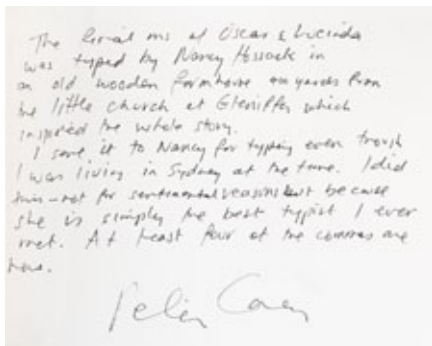 The final ms of Oscar & Lucinda
was typed by Nancy Hossack in
an old wooden farmhouse yards from
the little church at Gleniffer which
inspired the whole story.
I sent it to Nancy for typing even though
I was living in Sydney at the time. I did
this – not for sentimental reasons but because
she is simply the best typist I ever
met. At least four of the commas are
hers.
Peter Carey